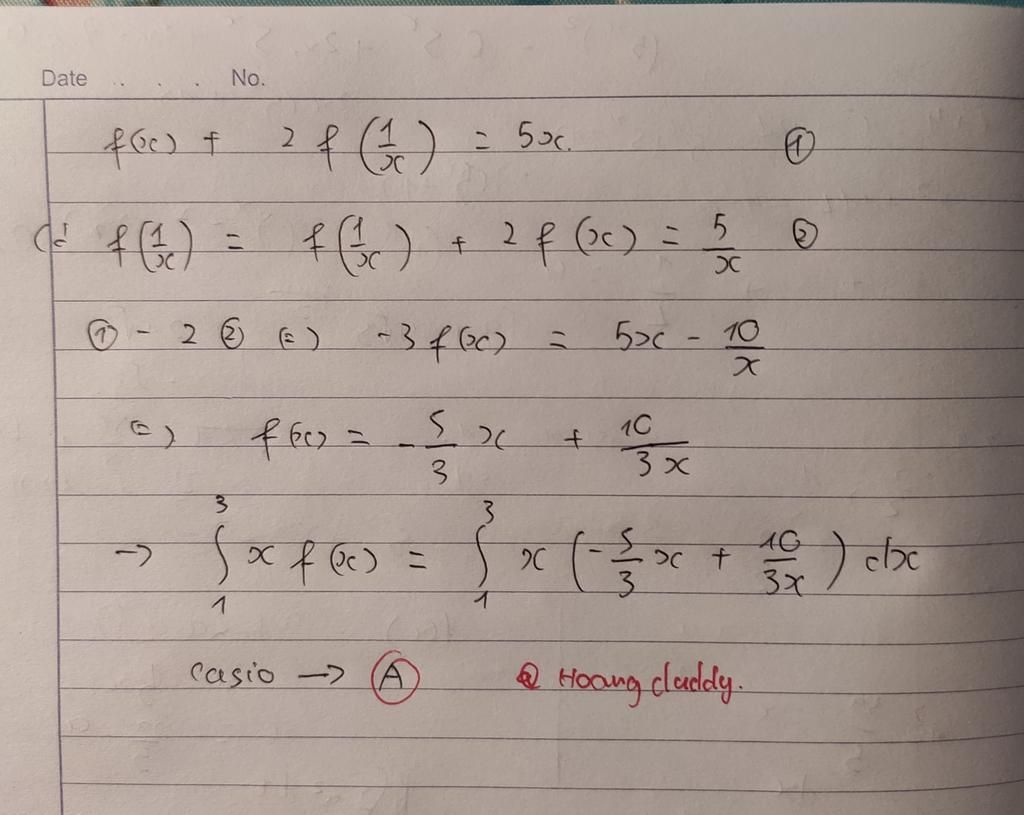 Date .. . . . No.
f(x) + 2 f (1/x) = 5x. ①
Có f(1/x) = f(1/x) + 2 f (x) = 5/x ②
① - 2 ② (=) -3 f(x) = 5x - 10/x
(=) f(x) = -5/3 x + 10/3x
→ ∫₁³ x f(x) = ∫₁³ x (-5/3 x + 10/3x) dx
casio → Ⓐ @ Hoang daddy.